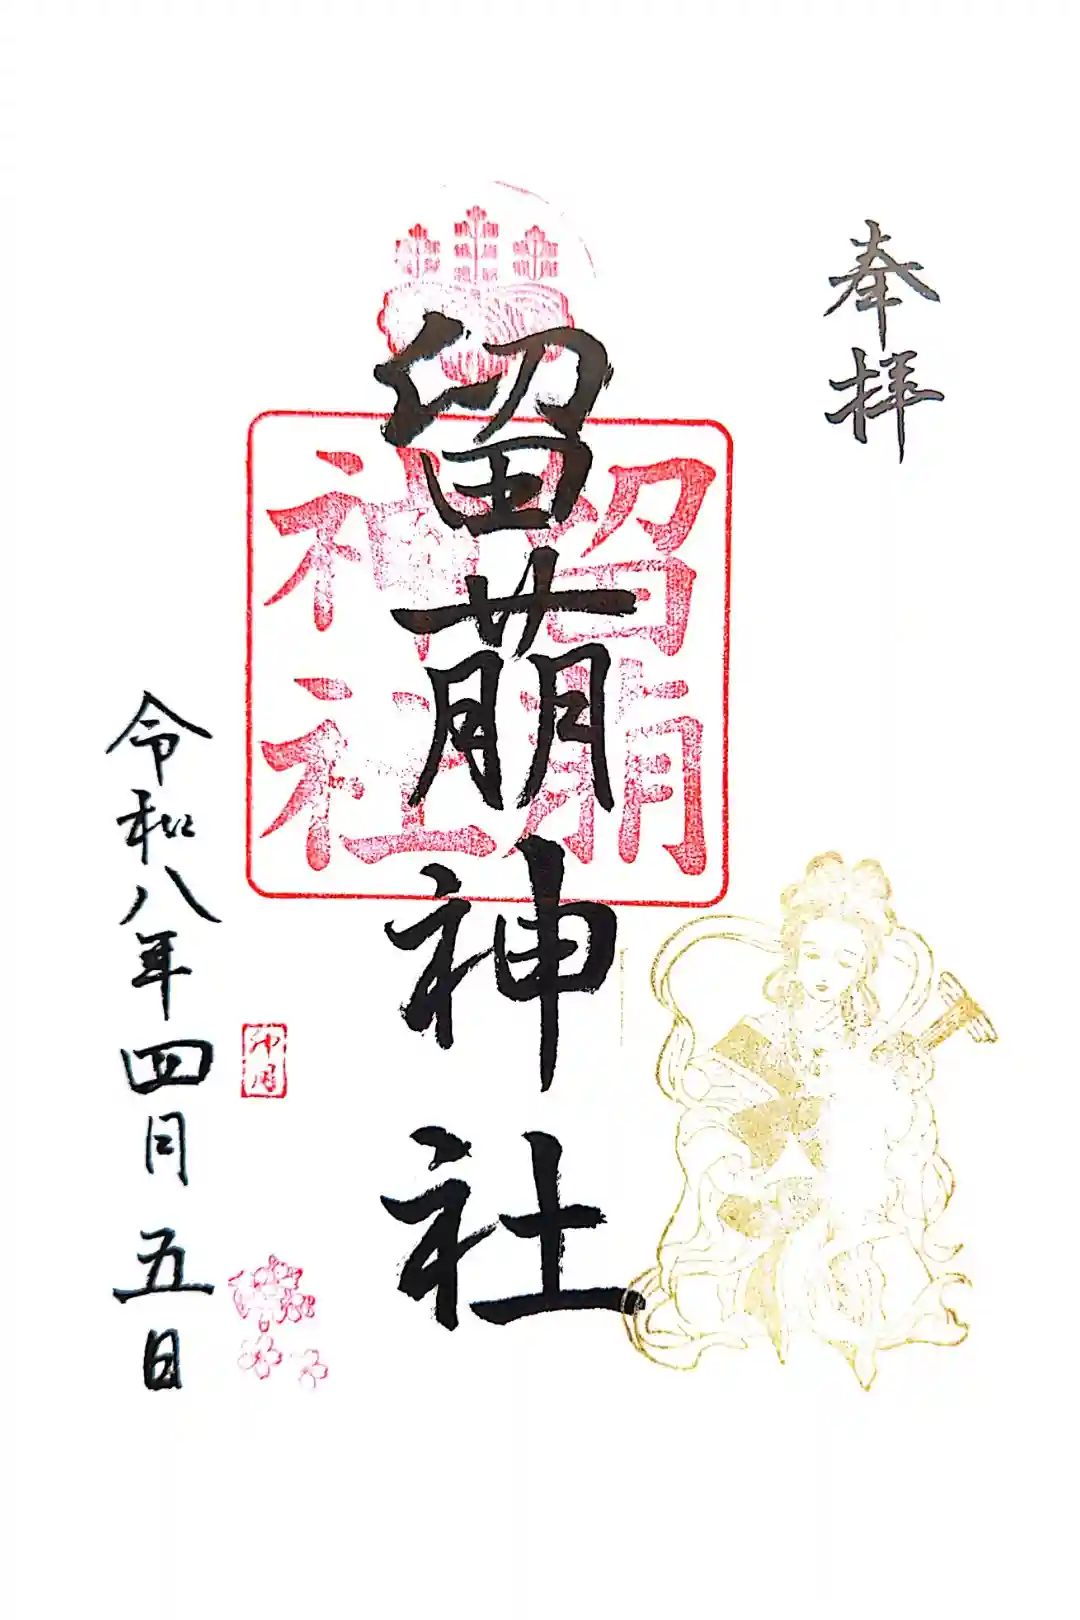 奉拝
留萌神社
留萌神社
令和八年四月五日
卯月